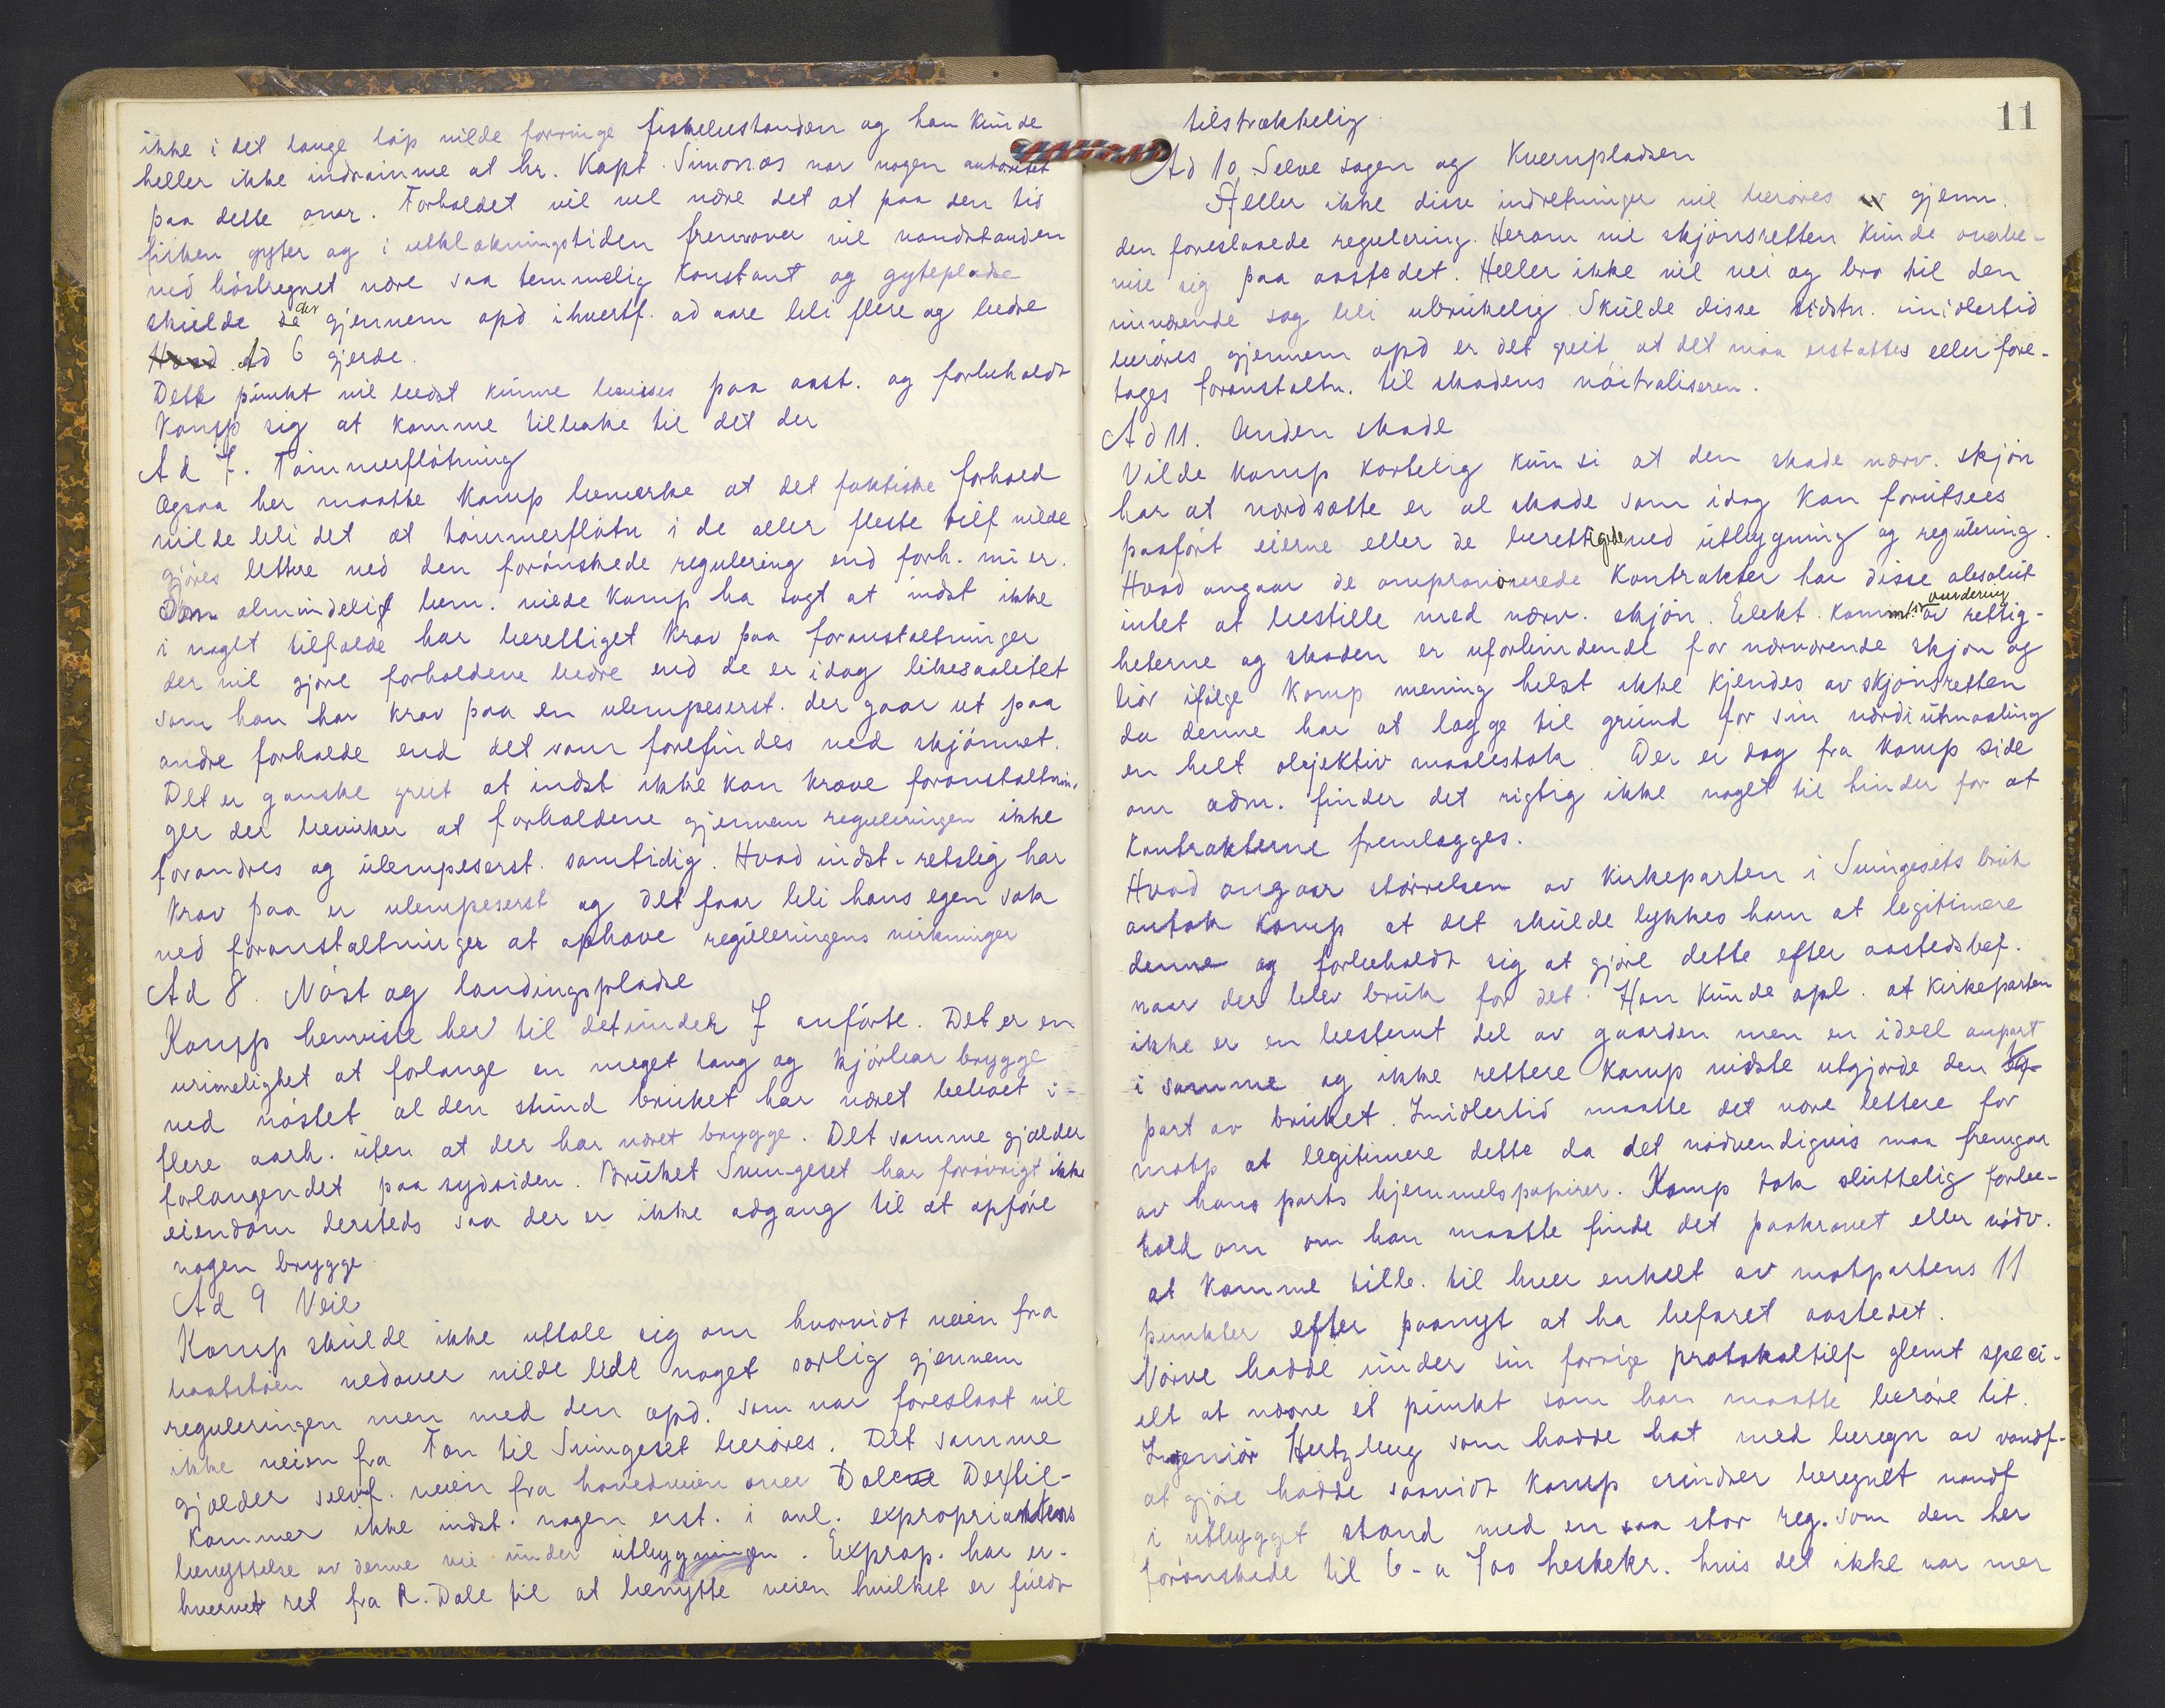 ikke i det lange løp vilde forringe fiskebestanden og han kunde
heller ikke indrømme at hr. Kapt. Simonæs var nogen autoritet
paa dette omr. Forholdet vil vel være det at paa den tid
fisken gyter og i utklækningstiden fremover vil vandstanden
ved høstregnet være saa temmelig konstant og gytepladse
skulde der gjennem opd ihvertf. ad aare bli flere og bedre
Ad 6 gjerde.
Dette punkt vil bedst kunne bevises paa aast. og forbeholdt
Kamp sig at komme tilbake til det der
Ad 7. Tømmerfløtning
Ogsaa her maatte Kamp bemerke at det faktiske forhold
vilde bli det at tømmerfløtn i de aller fleste tilf vilde
gjøres lettere ved den forønskede regulering end forh. nu er.
Som almindelig bem. vilde Kamp ha sagt at indst ikke
i noget tilfælde har berettiget krav paa foranstaltninger
der vil gjøre forholdene bedre end de er idag likesaalitet
som han har krav paa en ulempeserst. der gaar ut paa
andre forholde end det som forefindes ved skjønnet.
Det er ganske greit at indst ikke kan kræve foranstaltnin-
ger der bevirker at forholdene gjennem reguleringen ikke
forandres og ulempeserst. samtidig. Hvad indst. retslig har
krav paa er ulempeserst og det faar bli hans egen sak
ved foranstaltninger at ophæve reguleringens virkninger
Ad 8. Nøst og landingspladse
Kamp henviste her til det under 7 anførte. Det er en
urimelighet at forlange en meget lang og kjørbar brygge
ved nøstet al den stund bruket har været beboet i
flere aarh. uten at der har været brygge. Det samme gjælder
forlangendet paa sydsiden. Bruket Svingeset har forøvrigt ikke
eiendom dersteds saa der er ikke adgang til at opføre
nogen brygge
Ad 9 Veie
Kamp skulde ikke uttale sig om hvorvidt veien fra
baatstøen nedover vilde lide noget særlig gjennem
reguleringen men med den opd. som var foreslaat vil
ikke veien fra Ton til Svingeset berøres. Det samme
gjælder selvf. veien fra hovedveien over Dale Dertil-
kommer ikke indst. nogen erst. i anl. expropriantens
benyttelse av denne vei under utbygningen. Exprop. har er-
hvervet ret fra R. Dale til at benytte veien hvilket er fuldt
11
tilstrækkelig.
Ad 10. Selve sagen og Kvernpladsen
Heller ikke disse indretninger vil berøres gjenn.
den foreslaaede regulering. Herom vil skjønsretten kunde overbe-
vise sig paa aastedet. Heller ikke vil vei og bro til den
nuværende sag bli ubrukelig. Skulde disse sidstn. imidlertid
berøres gjennem opd er det greit at det maa erstattes eller fore-
tages foranstaltn. til skadens nøitraliseren.
Ad 11. Anden skade
Vilde Kamp kortelig kun si at den skade nærv. skjøn
har at værdsætte er al skade som idag kan forutsees
paaført eierne eller de berettigede ved utbygning og regulering.
Hvad angaar de omprovoserede kontrakter har disse absolut
intet at bestille med nærv. skjøn. Elekt. komm.s vurdering av rettig-
heterne og skaden er uforbindende for nærværende skjøn og
bør ifølge Kamp mening helst ikke kjendes av skjønsretten
da denne har at lægge til grund for sin værdiutmaaling
en helt objektiv maalestok. Der er dog fra Kamp side
om adm. finder det rigtig ikke noget til hinder for at
kontrakterne fremlægges.
Hvad angaar størrelsen av kirkeparten i Svingesets bruk
antok Kamp at det skulde lykkes ham at legitimere
denne og forbeholdt sig at gjøre dette efter aastedsbef.
naar der blev bruk for det. Han kunde opl. at kirkeparten
ikke er en bestemt del av gaarden men en ideel anpart
i samme og ikke rettere Kamp vidste utgjorde den
part av bruket. Imidlertid maatte det være lettere for
motp at legitimere dette da det nødvendigvis maa fremgaa
av hans parts hjemmelspapirer. Kamp tok sluttelig forbe-
hold om om han maatte finde det paakrævet eller nødv.
at komme tilb. til hver enkelt av motpartens 11
punkter efter paanyt at ha befaret aastedet.
Nørve hadde under sin forrige protokoltilf glemt speci-
elt at nævne et punkt som han maatte berøre lit.
Ingeniør Hertzberg som hadde hat med beregn av vandf-
at gjøre hadde saavidt Kamp erindrer beregnet vandf
i utbygget stand med en saa stor reg. som den her
forønskede til 6 a 700 hestekr. hvis det ikke var mer